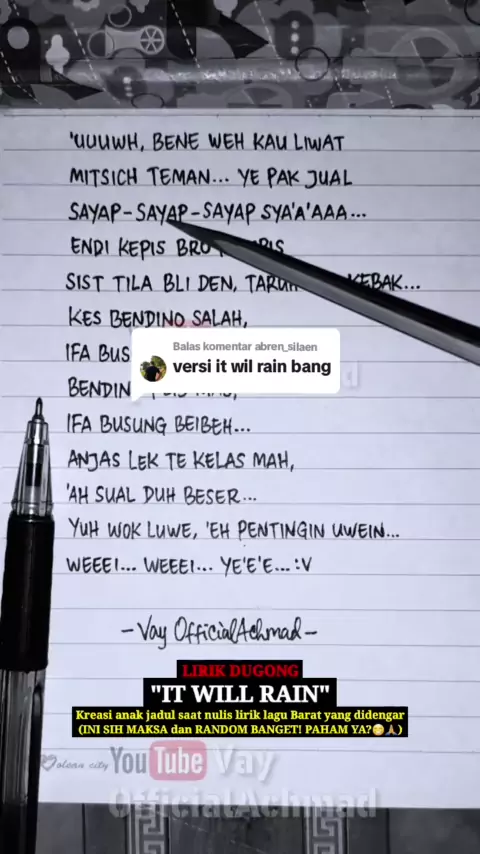 'UUUWH, BENE WEH KAU LIWAT
MITSICH TEMAN... YE PAK JUAL
SAYAP-SAYAP-SAYAP SYA'A'AAA...
ENDI KEPIS BRO
SIST TILA BLI DEN, KEBAK...
KES BENDINO SALAH,
Balas komentar abren_silaen
versi it wil rain bang
IFA
IFA BUSUNG BEIBEH...
ANJAS LEK TE KELAS MAH,
'AH SUAL DUH BESER...
YUH WOK LUWE, 'EH PENTINGIN UWEIN...
WEEEI... WEEEI... YE'E'E... :V
-Vay OfficialAchmad-
LIRIK DUGONG
"IT WILL RAIN"
Kreasi anak jadul saat nulis lirik lagu Barat yang didengar
(INI SIH MAKSA dan RANDOM BANGET! PAHAM YA?😋🙏)
olcan city
YouTube Vay
OfficialAchmad